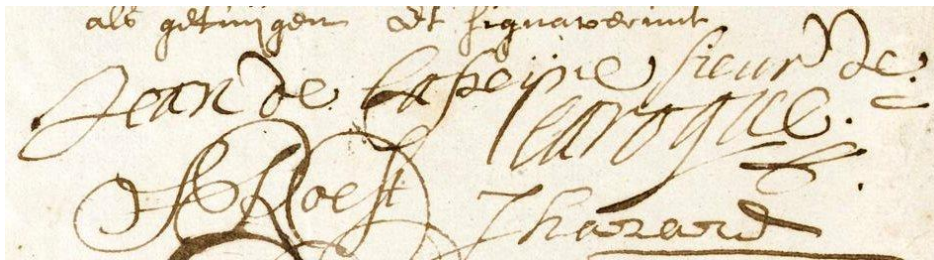 als getuijgen Et signaverunt
Jean de Lapeijre sieur de.
Laroque.
Roest J hazard